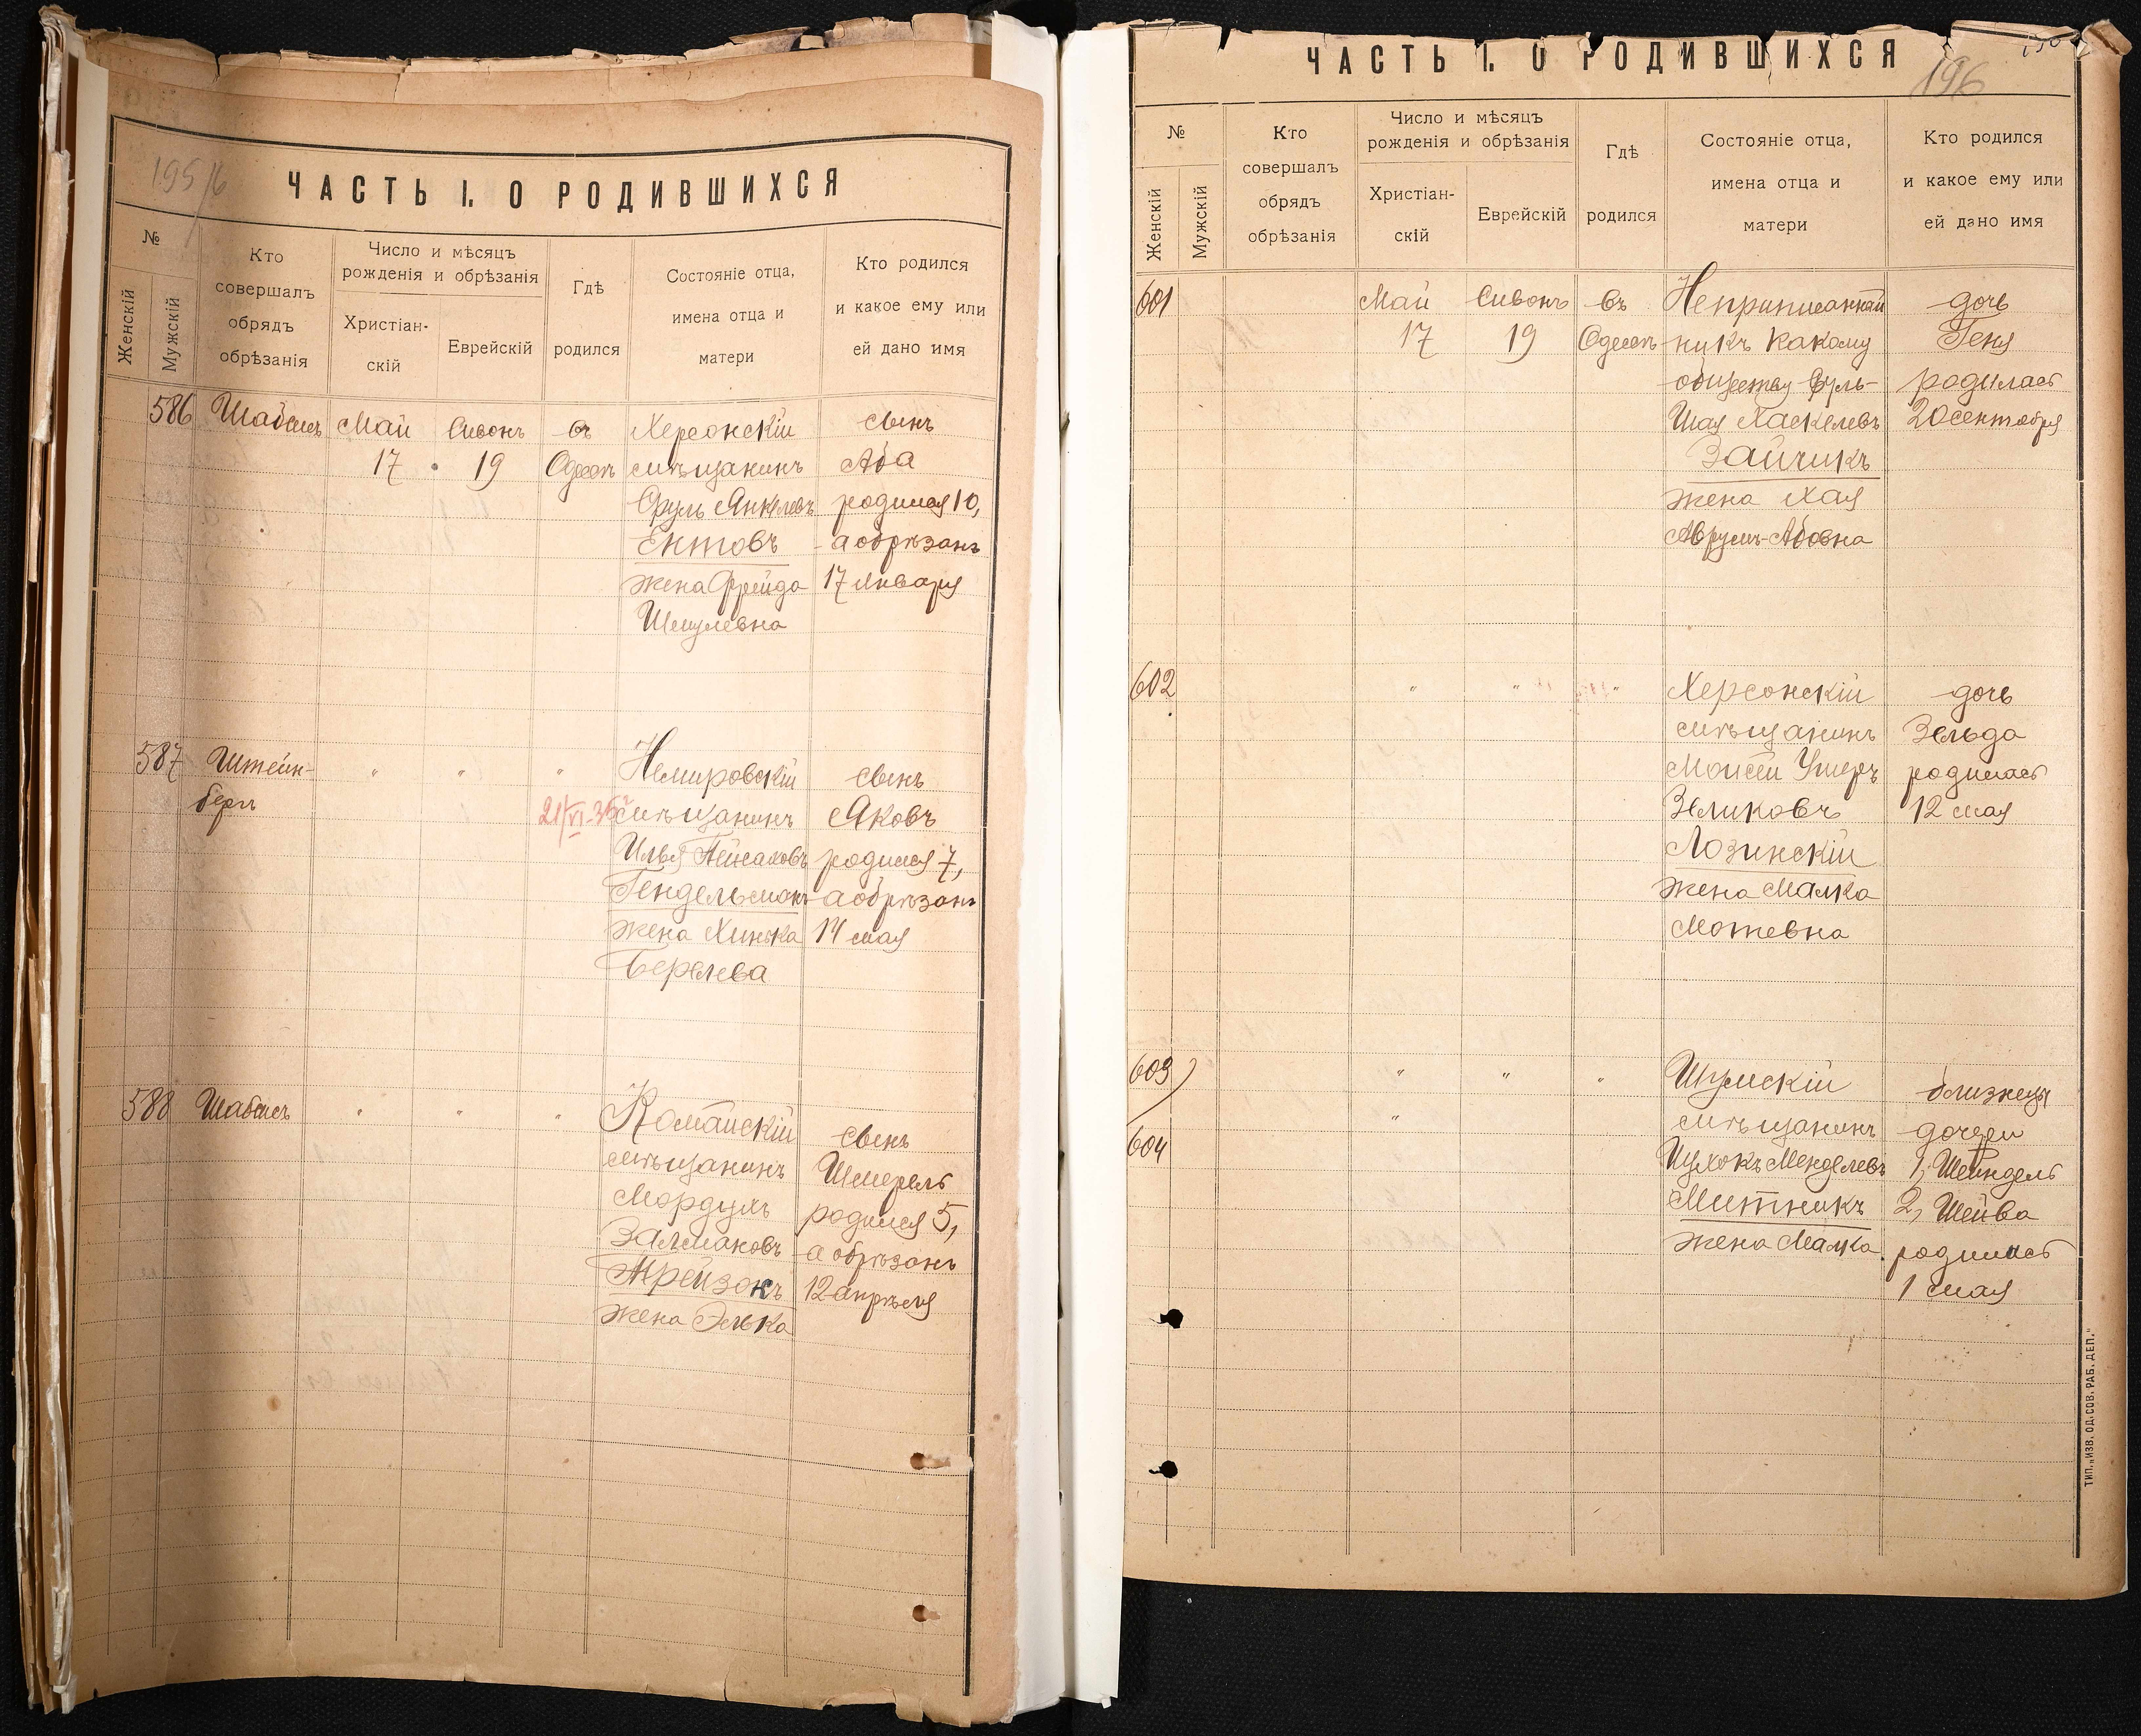 195/6
ЧАСТЬ I. О РОДИВШИХСЯ
№
Женскій
Мужскій
Кто
совершалъ
обрядъ
обрѣзанія
Число и мѣсяцъ
рожденія и обрѣзанія
Христіан-
скій
Еврейскій
Гдѣ
родился
Состояніе отца,
имена отца и
матери
Кто родился
и какое ему или
ей дано имя
586 Шабсисъ Май Сивонъ въ Херсонскій сынъ
17 19 Одессѣ мѣщанинъ Аба
Сруль Янкелевъ родился 10,
Ектовъ а обрѣзанъ
жена Фрейда 17 января
Шмулевна
587 Штейн- " " " Немировскій сынъ
бергъ 21/VI-35 мѣщанинъ Яковъ
Илья родился 7,
Гендельманъ а обрѣзанъ
жена Хинька 14 мая
Берелева
588 Шабсисъ " " " сынъ
мѣщанинъ Шмерель
Мордухъ родился 5,
Залмановъ а обрѣзанъ
Трейзонъ 12 апрѣля
жена Элька
ЧАСТЬ I. О РОДИВШИХСЯ
196
№
Женскій
Мужскій
Кто
совершалъ
обрядъ
обрѣзанія
Число и мѣсяцъ
рожденія и обрѣзанія
Христіан-
скій
Еврейскій
Гдѣ
родился
Состояніе отца,
имена отца и
матери
Кто родился
и какое ему или
ей дано имя
601 Май Сивонъ въ Неприписанный дочь
17 19 Одессѣ никъ какому Геня
обществу Сруль- родилась
Шая Хаскелевъ 20 сентября
Зайчикъ
жена Хая
Аврумъ-Абовна
602 " " " Херсонскій дочь
мѣщанинъ Зельда
Моисей Ушеръ родилась
Зеликовъ 12 мая
Лозинскій
жена Малка
Мотевна
603 " " " Шумскій близнецы
" мѣщанинъ дочери
604 Ицхокъ Менделевъ 1, Шейндель
Митникъ 2, Шейва
жена Малка родились
1 мая
ТИП. „ИЗВ. ОД. СОВ. РАБ. ДЕП."